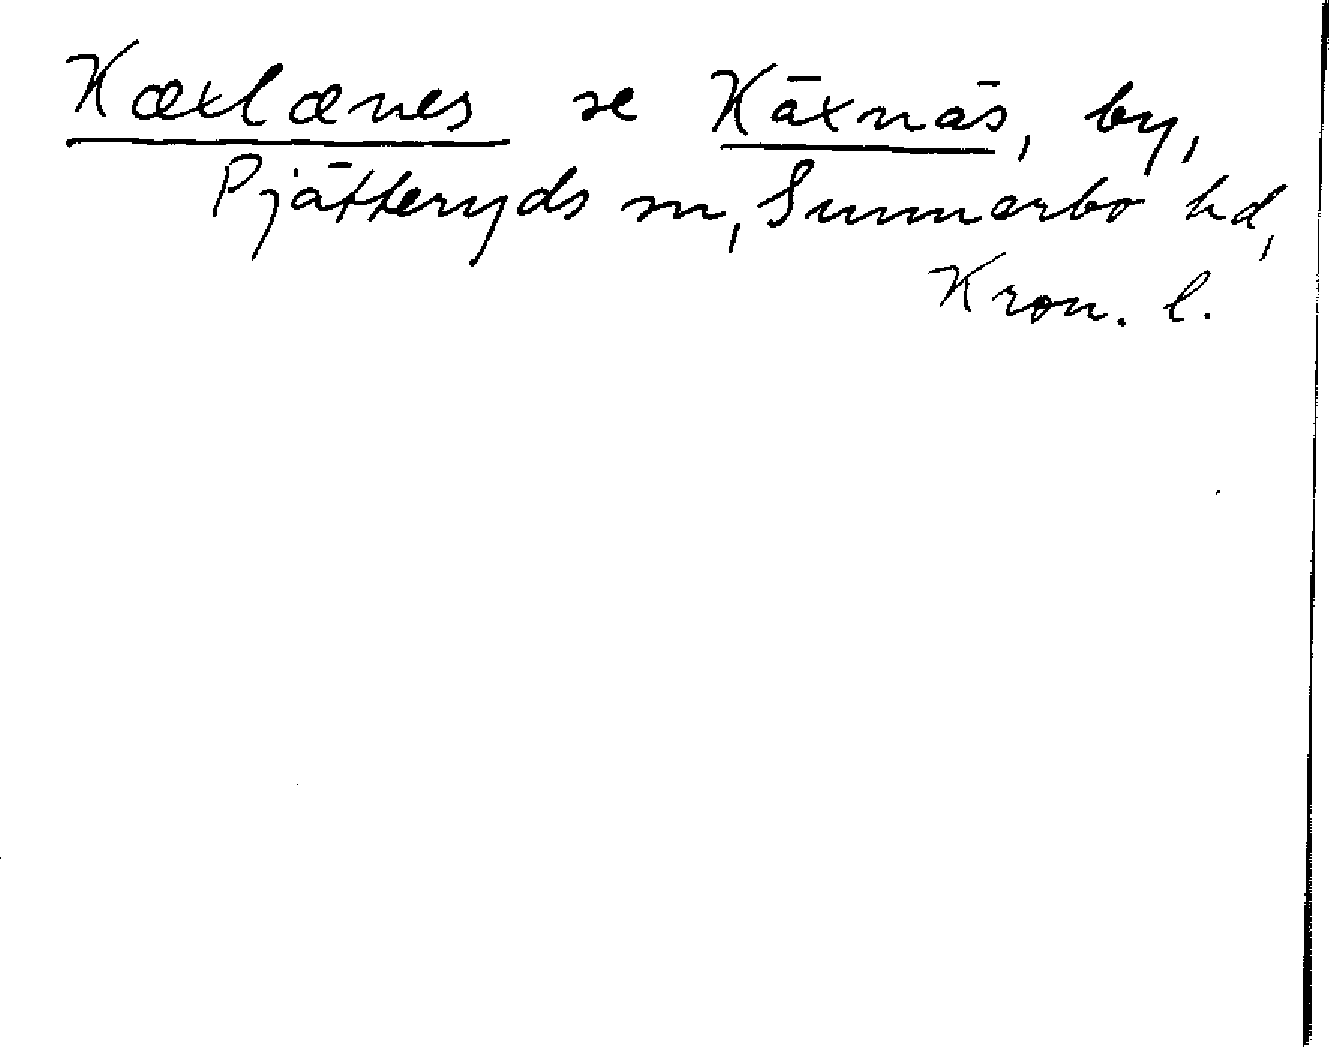 Kæxlænes se Käxnäs, by,
Pjätteryds sn, Sunnerbo hd,
Kron. l.